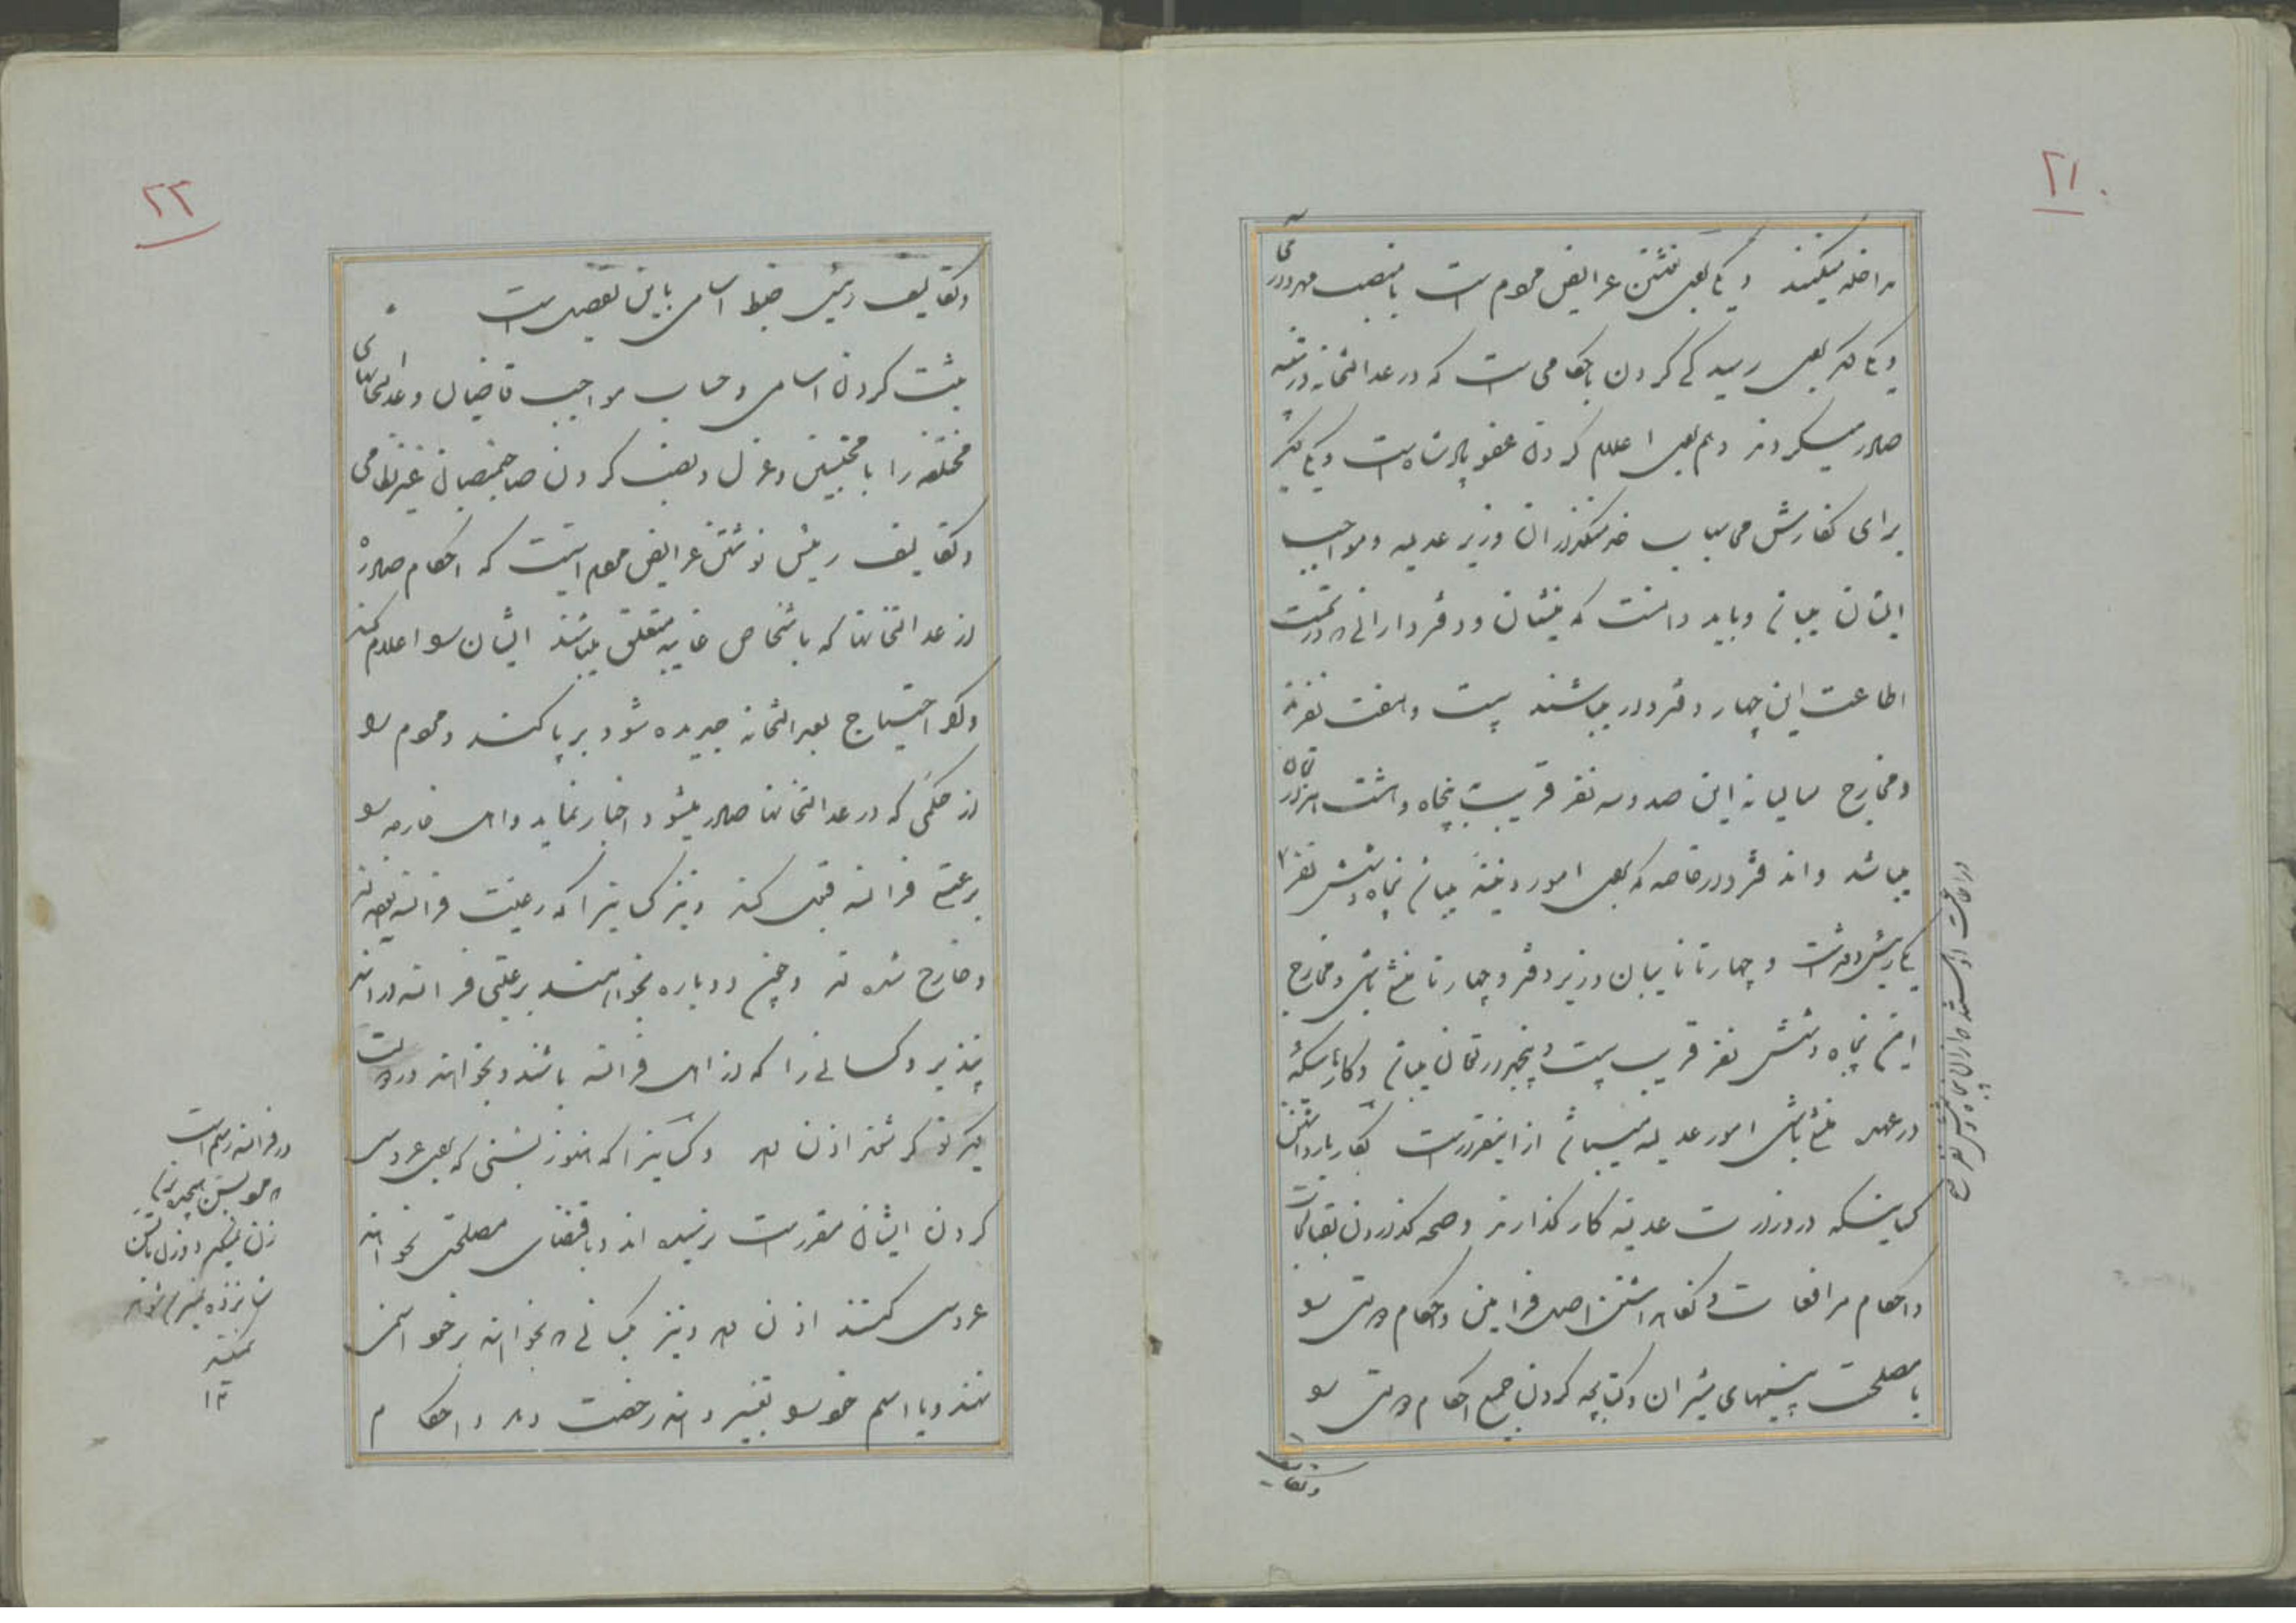 ۲۱
مداخله میکنند و یکی بجهة نوشتن عرایض عموم است با منصب مهرداری
و یکی دیگر بجهة رسیدگی کردن باحکامی است که در عدالتخانه
صادر میگردند و هم بجهة اعلام کردن عفو پادشاه است و یکی دیگر
برای گذارش محاسبات خدمتگذاران وزیر عدلیه و مواجب
ایشان میباشد و باید دانست که منشیان و دفترداران که در تحت
اطاعت این چهار دفتردار میباشند بیست و هفت نفرند
و مخارج سالیانه این صد و سه نفر قریب پنجاه و هشت هزار تومان
میباشد و اما دفتر خاصه که بجهة امور دینیه میباشد پنجاه و شش نفر
یک رئیس دفتر است و چهار تا نایبان وزیر دفتر و چهار تا منشی باشی و مخارج
این پنجاه و شش نفر قریب بیست و پنجهزار تومان میباشد و کارهائیکه
در عهده منشی باشی امور عدلیه میباشد از اینقرار است
کسانیکه در وزارت عدلیه کار گذارند
و احکام مرافعات و نگاه داشتن اصل فرامین و احکام دولتی را
با مصلحت بینیهای مشیران و کتابچه کردن جمیع احکام دولتی را
و تکالیف
در اطاعت او هستند
۲۳
و تکالیف رئیس ضبط اسامی باین تفصیل است
ثبت کردن اسامی و حساب مواجب قاضیان و عدالتخانهای
مختلفه را با محتسبین و عزل و نصب کردن صاحبمنصبان غیر نظامی
و تکالیف رئیس نوشتن عرایض عموم اینست که احکام صادره
از عدالتخانها که باشخاص غایبه متعلق میباشند ایشان را اعلام کند
و اگر احتیاج بعدالتخانه جدیده شود برپا کنند و عموم را
از حکمی که در عدالتخانها صادر میشود اخبار نماید و اهل خارجه را
برعیتی فرانسه قبول کند و نیز کسانیرا که رعیت فرانسه بوده اند
و خارج شده اند و چون دوباره بخواهند برعیتی فرانسه درآیند
بپذیرد و کسانی را که از اهل فرانسه باشند و بخواهند در دولت
دیگر نوکر شوند اذن دهد و کسانیرا که هنوز بسنی که بجهة عروسی
کردن ایشان مقرر است نرسیده اند و باقتضای مصلحتی بخواهند
عروسی کنند اذن دهد و نیز کسانی که بخواهند بر خود اسمی
نهند و یا اسم خود را تغییر دهند رخصت دهد و احکام
در فرانسه رسم است
که مرد بسن هیجده
زن نمیگیرد و زن تا بسن
پانزده نرسد شوهر
نمیکند
۱۲